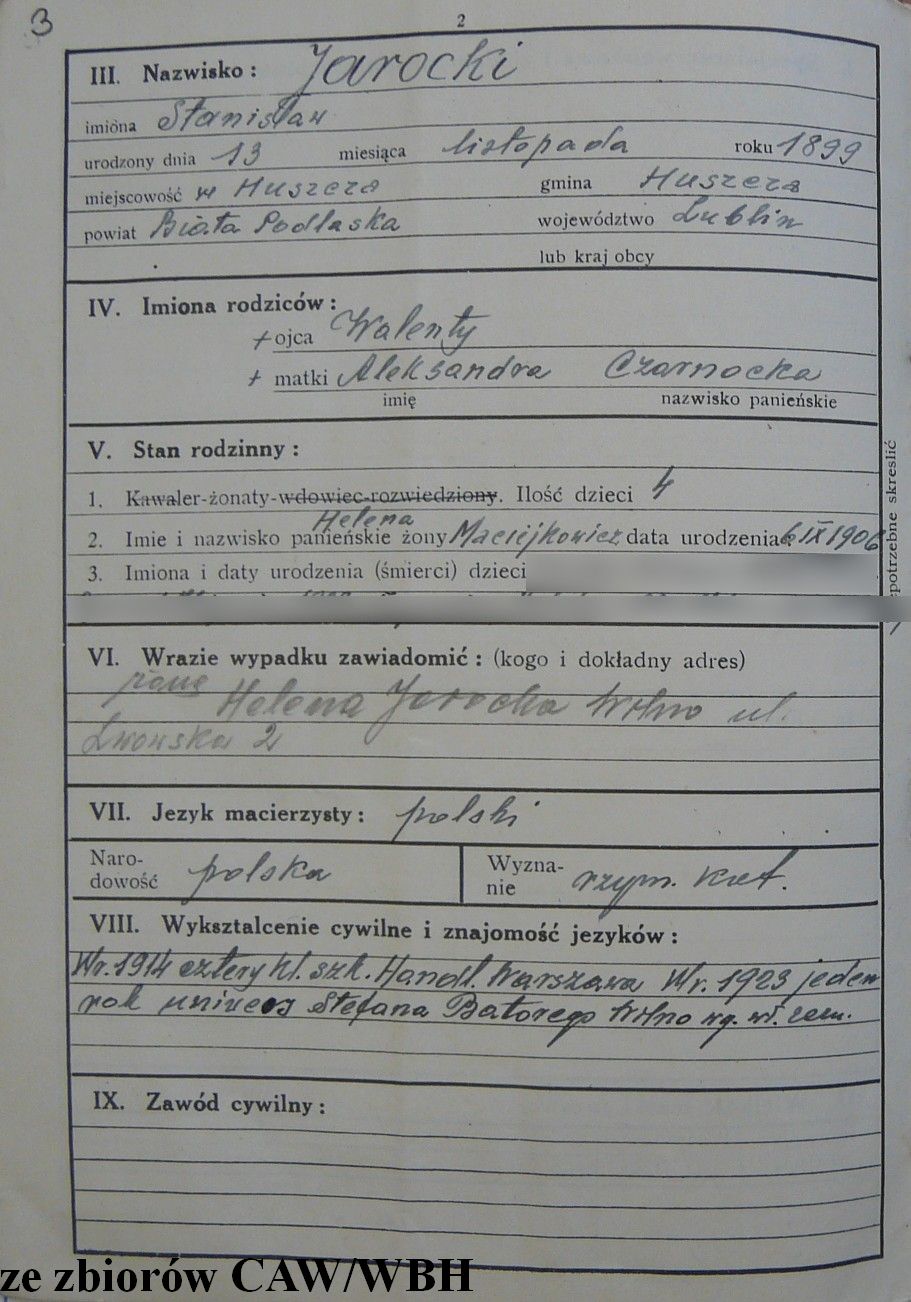 3
2
III. Nazwisko: Jarocki
imiona Stanisław
urodzony dnia 13 miesiąca listopada roku 1899
miejscowość w Huszcza gmina Huszcza
powiat Biała Podlaska województwo Lublin
lub kraj obcy
IV. Imiona rodziców:
+ ojca Walenty
+ matki Aleksandra Czarnocka
imię nazwisko panieńskie
V. Stan rodzinny:
1. Kawaler-żonaty-wdowiec-rozwiedziony. Ilość dzieci 4
Helena
2. Imie i nazwisko panieńskie żony Maciejkowicz data urodzenia 6 IX 1906
3. Imiona i daty urodzenia (śmierci) dzieci
potrzebne skreslić
VI. Wrazie wypadku zawiadomić: (kogo i dokładny adres)
żonę Helena Jarocka Wilno ul.
Lwowska 2
VII. Jezyk macierzysty: polski
Naro-
dowość polska
Wyzna-
nie rzym. kat.
VIII. Wyksztalcenie cywilne i znajomość jezyków:
W r. 1914 cztery kl. szk. Handl. Warszawa W r. 1923 jeden
rok uniwers Stefana Batorego Wilno wg. wł. zezn.
IX. Zawód cywilny:
ze zbiorów CAW/WBH